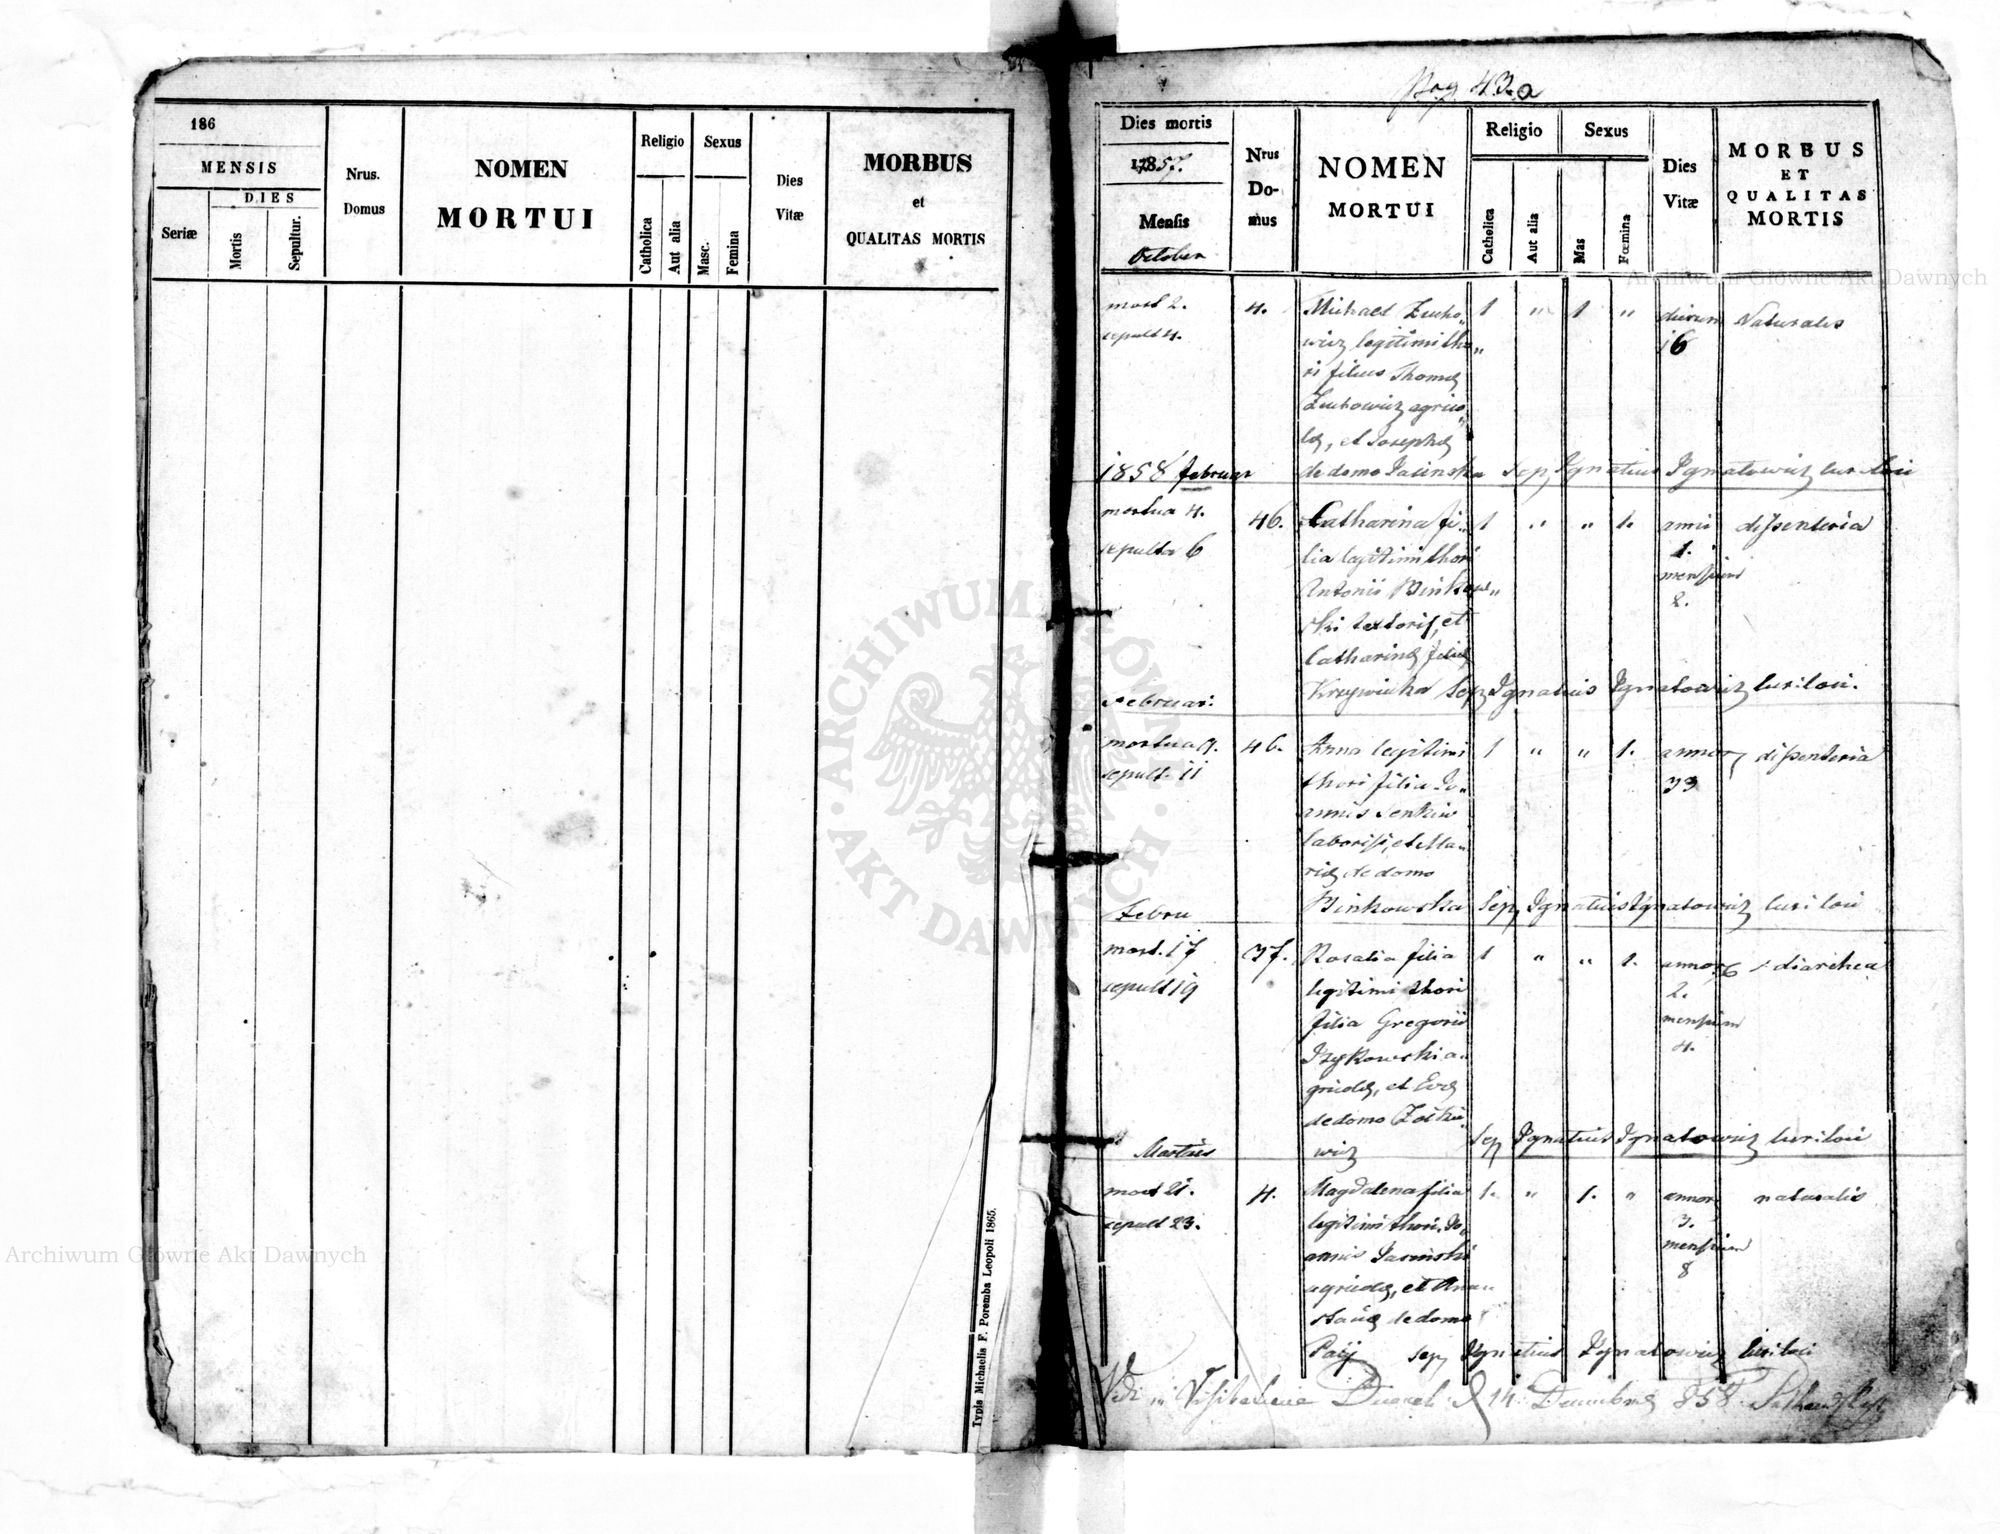 186
MENSIS
DIES
Seriæ
Mortis
Sepultur.
Nrus.
Domus
NOMEN
MORTUI
Religio
Catholica
Aut alia
Sexus
Masc.
Femina
Dies
Vitæ
MORBUS
et
QUALITAS MORTIS
Typis Michaelis F. Poremba Leopoli 1865.
Pag 43.a
Dies mortis
1857.
Mensis
October
Nrus
Do-
mus
NOMEN
MORTUI
Religio
Catholica
Aut alia
Sexus
Mas
Fœmina
Dies
Vitæ
MORBUS
ET
QUALITAS
MORTIS
mort 2.
sepult 4.
4.
Michael
legitimi tho„
ri filius Thomæ
agrico„
læ, et Josephæ
de domo Jasinska
1 „ 1 „
dierum
16
Naturalis
Sep Ignatius Ignatowicz cur: loci
1858 februar
mortua 4.
sepulta 6
46.
Catharina fi„
lia legitimi thori
Antonii Binkow„
ski textoris, et
Catharinæ filiæ
1 „ „ 1.
anni
1.
mensium
2.
dissenteria
Sep Ignatius Ignatowicz cur: loci.
Februar:
mortua 9.
sepult. 11
46.
Anna legitimi
thori filia Jo„
annis Senkiw
laboriosi, et Ma„
riæ de domo
Binkowska
1 „ „ 1.
annor
33
dissenteria
Sep Ignatius Ignatowicz cur: loci
Febru
mort. 17
sepult 19
37.
Rosalia filia
legitimi thori
filia Gregorii
a„
gricolæ, et Evæ
de domo
wicz
1 „ „ 1.
annor
2.
mensium
4.
diarrhea
Sep Ignatius Ignatowicz cur: loci
Martius
mort 21.
sepult 23.
4.
Magdalena filia
legitimi thori Jo„
annis Jasinski
agricolæ, et Ana„
staziæ de domo
1. „ 1. „
annor
3.
mensium
8
naturalis
Sep Ignatius Ignatowicz cur: loci
Vidi in Visitatione 14 Decembris 858
ARCHIWUM GŁÓWNE · AKT DAWNYCH ·
Archiwum Główne Akt Dawnych
Archiwum Główne Akt Dawnych